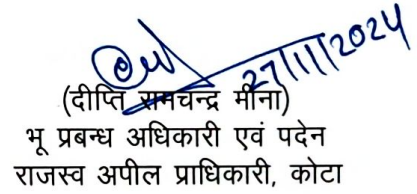 27/11/2024
(दीप्ति रामचन्द्र मीना)
भू प्रबन्ध अधिकारी एवं पदेन
राजस्व अपील प्राधिकारी, कोटा